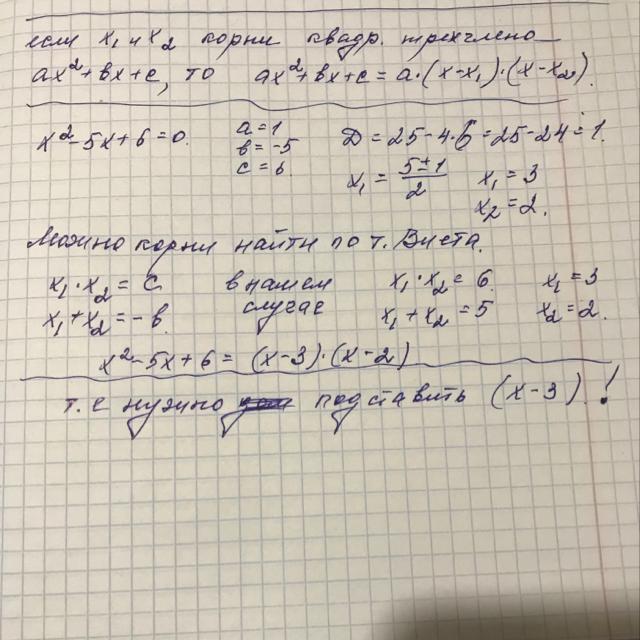 если x₁ и x₂ корни квадр. трехчлено
ax²+вx+c, то ax²+вx+c = a·(x-x₁)·(x-x₂).
x²-5x+6=0. a=1 D=25-4·6=25-24=1.
в=-5
c=6
x₁ = (5±1)/2 x₁=3
x₂=2.
Можно корни найти по т. Виета.
x₁·x₂=c в нашем x₁·x₂=6 x₁=3
x₁+x₂=-в случае x₁+x₂=5 x₂=2.
x²-5x+6 = (x-3)·(x-2)
т.е нужно подставить (x-3)!